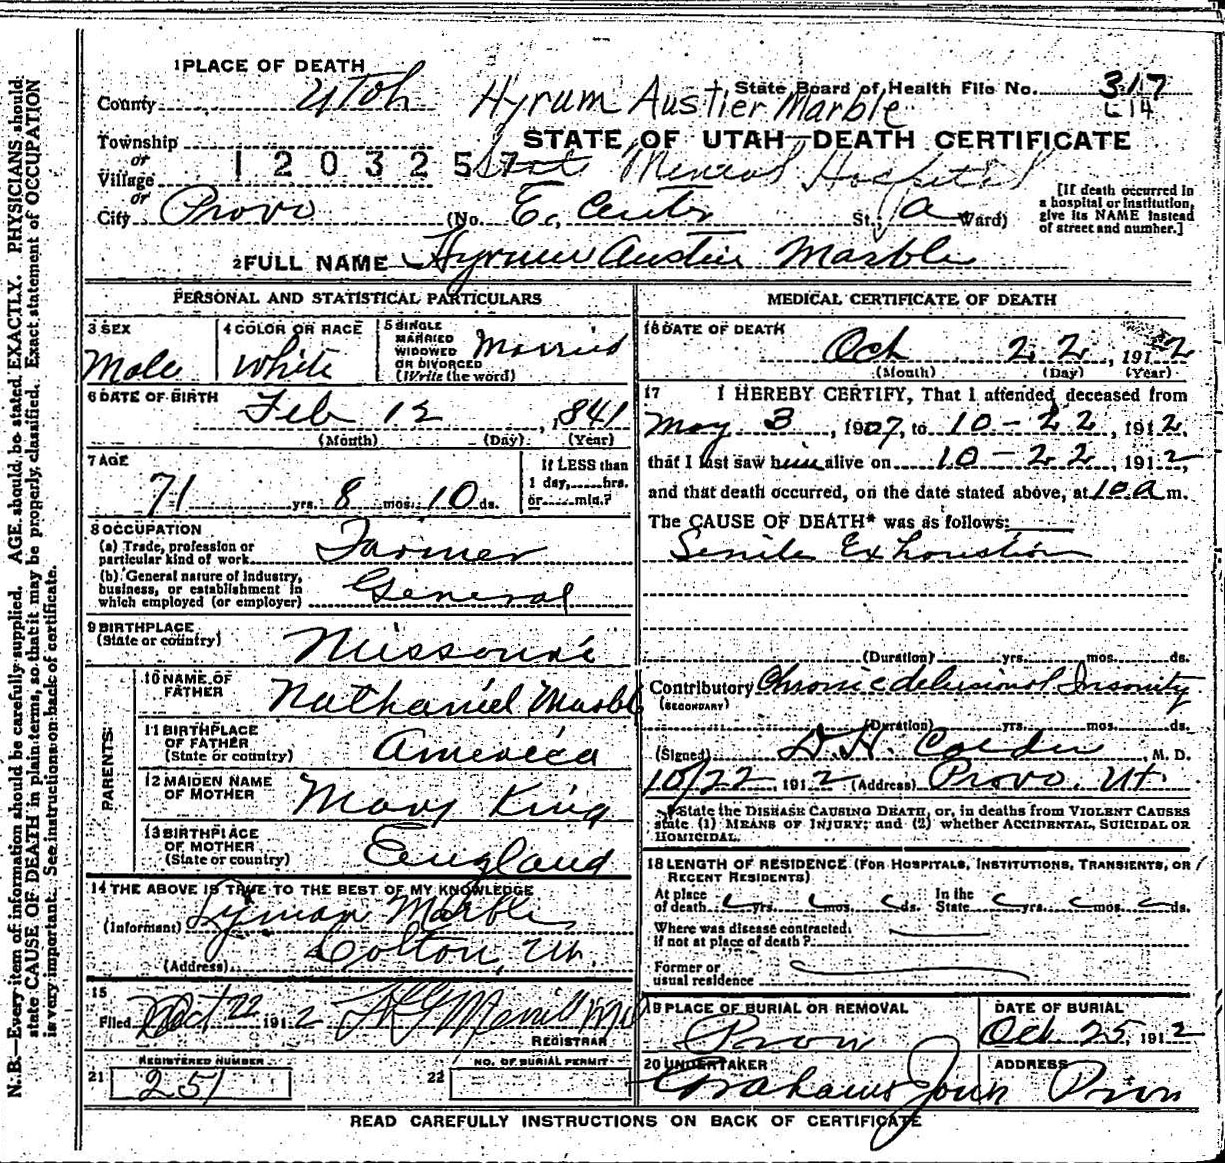 1 PLACE OF DEATH
County Utah
Hyrum Austier Marble
State Board of Health File No. 317
L 14
STATE OF UTAH—DEATH CERTIFICATE
Township
or
Village
1203257
State Mental Hospital
or
City Provo (No. E. Center St.; a Ward)
[If death occurred in
a hospital or institution,
give its NAME instead
of street and number.]
2 FULL NAME Hyrum Austin Marble
PERSONAL AND STATISTICAL PARTICULARS
3 SEX
Male
4 COLOR OR RACE
White
5 SINGLE
MARRIED
WIDOWED
OR DIVORCED
(Write the word)
Married
6 DATE OF BIRTH
Feb 12, 1841
(Month) (Day) (Year)
7 AGE
71 yrs. 8 mos. 10 ds.
If LESS than
1 day, hrs.
or min.?
8 OCCUPATION
(a) Trade, profession or
particular kind of work Farmer
(b) General nature of Industry,
business, or establishment in
which employed (or employer) General
9 BIRTHPLACE
(State or country) Missouri
PARENTS
10 NAME OF
FATHER Nathaniel Marble
11 BIRTHPLACE
OF FATHER
(State or country) America
12 MAIDEN NAME
OF MOTHER Mary King
13 BIRTHPLACE
OF MOTHER
(State or country) England
14 THE ABOVE IS TRUE TO THE BEST OF MY KNOWLEDGE
(Informant) Lyman Marble
(Address) Colton, Ut.
15
Filed Oct 22 1912 Merrill
REGISTRAR
REGISTERED NUMBER
21 251
NO. OF BURIAL PERMIT
22
MEDICAL CERTIFICATE OF DEATH
16 DATE OF DEATH
Oct 22, 1912
(Month) (Day) (Year)
17 I HEREBY CERTIFY, That I attended deceased from
May 3, 1907, to 10-22, 1912,
that I last saw him alive on 10-22, 1912,
and that death occurred, on the date stated above, at 10 a m.
The CAUSE OF DEATH* was as follows:
Senile Exhoustion
(Duration) yrs. mos. ds.
Contributory Chronic delusional Insanity
(SECONDARY)
(Duration) yrs. mos. ds.
(Signed) D. H. Calder M. D.
10/22, 1912 (Address) Provo, Ut.
* State the DISEASE CAUSING DEATH, or, in deaths from VIOLENT CAUSES
state (1) MEANS OF INJURY; and (2) whether ACCIDENTAL, SUICIDAL OR
HOMICIDAL.
18 LENGTH OF RESIDENCE (FOR HOSPITALS, INSTITUTIONS, TRANSIENTS, OR
RECENT RESIDENTS)
At place
of death yrs. mos. ds.
In the
State yrs. mos. ds.
Where was disease contracted,
if not at place of death?
Former or
usual residence
19 PLACE OF BURIAL OR REMOVAL
Provo
DATE OF BURIAL
Oct. 25, 1912
20 UNDERTAKER
ADDRESS
Provo
READ CAREFULLY INSTRUCTIONS ON BACK OF CERTIFICATE
N. B.—Every item of information should be carefully supplied. AGE should be stated EXACTLY. PHYSICIANS should
state CAUSE OF DEATH in plain terms, so that it may be properly classified. Exact statement of OCCUPATION
is very important. See instructions on back of certificate.